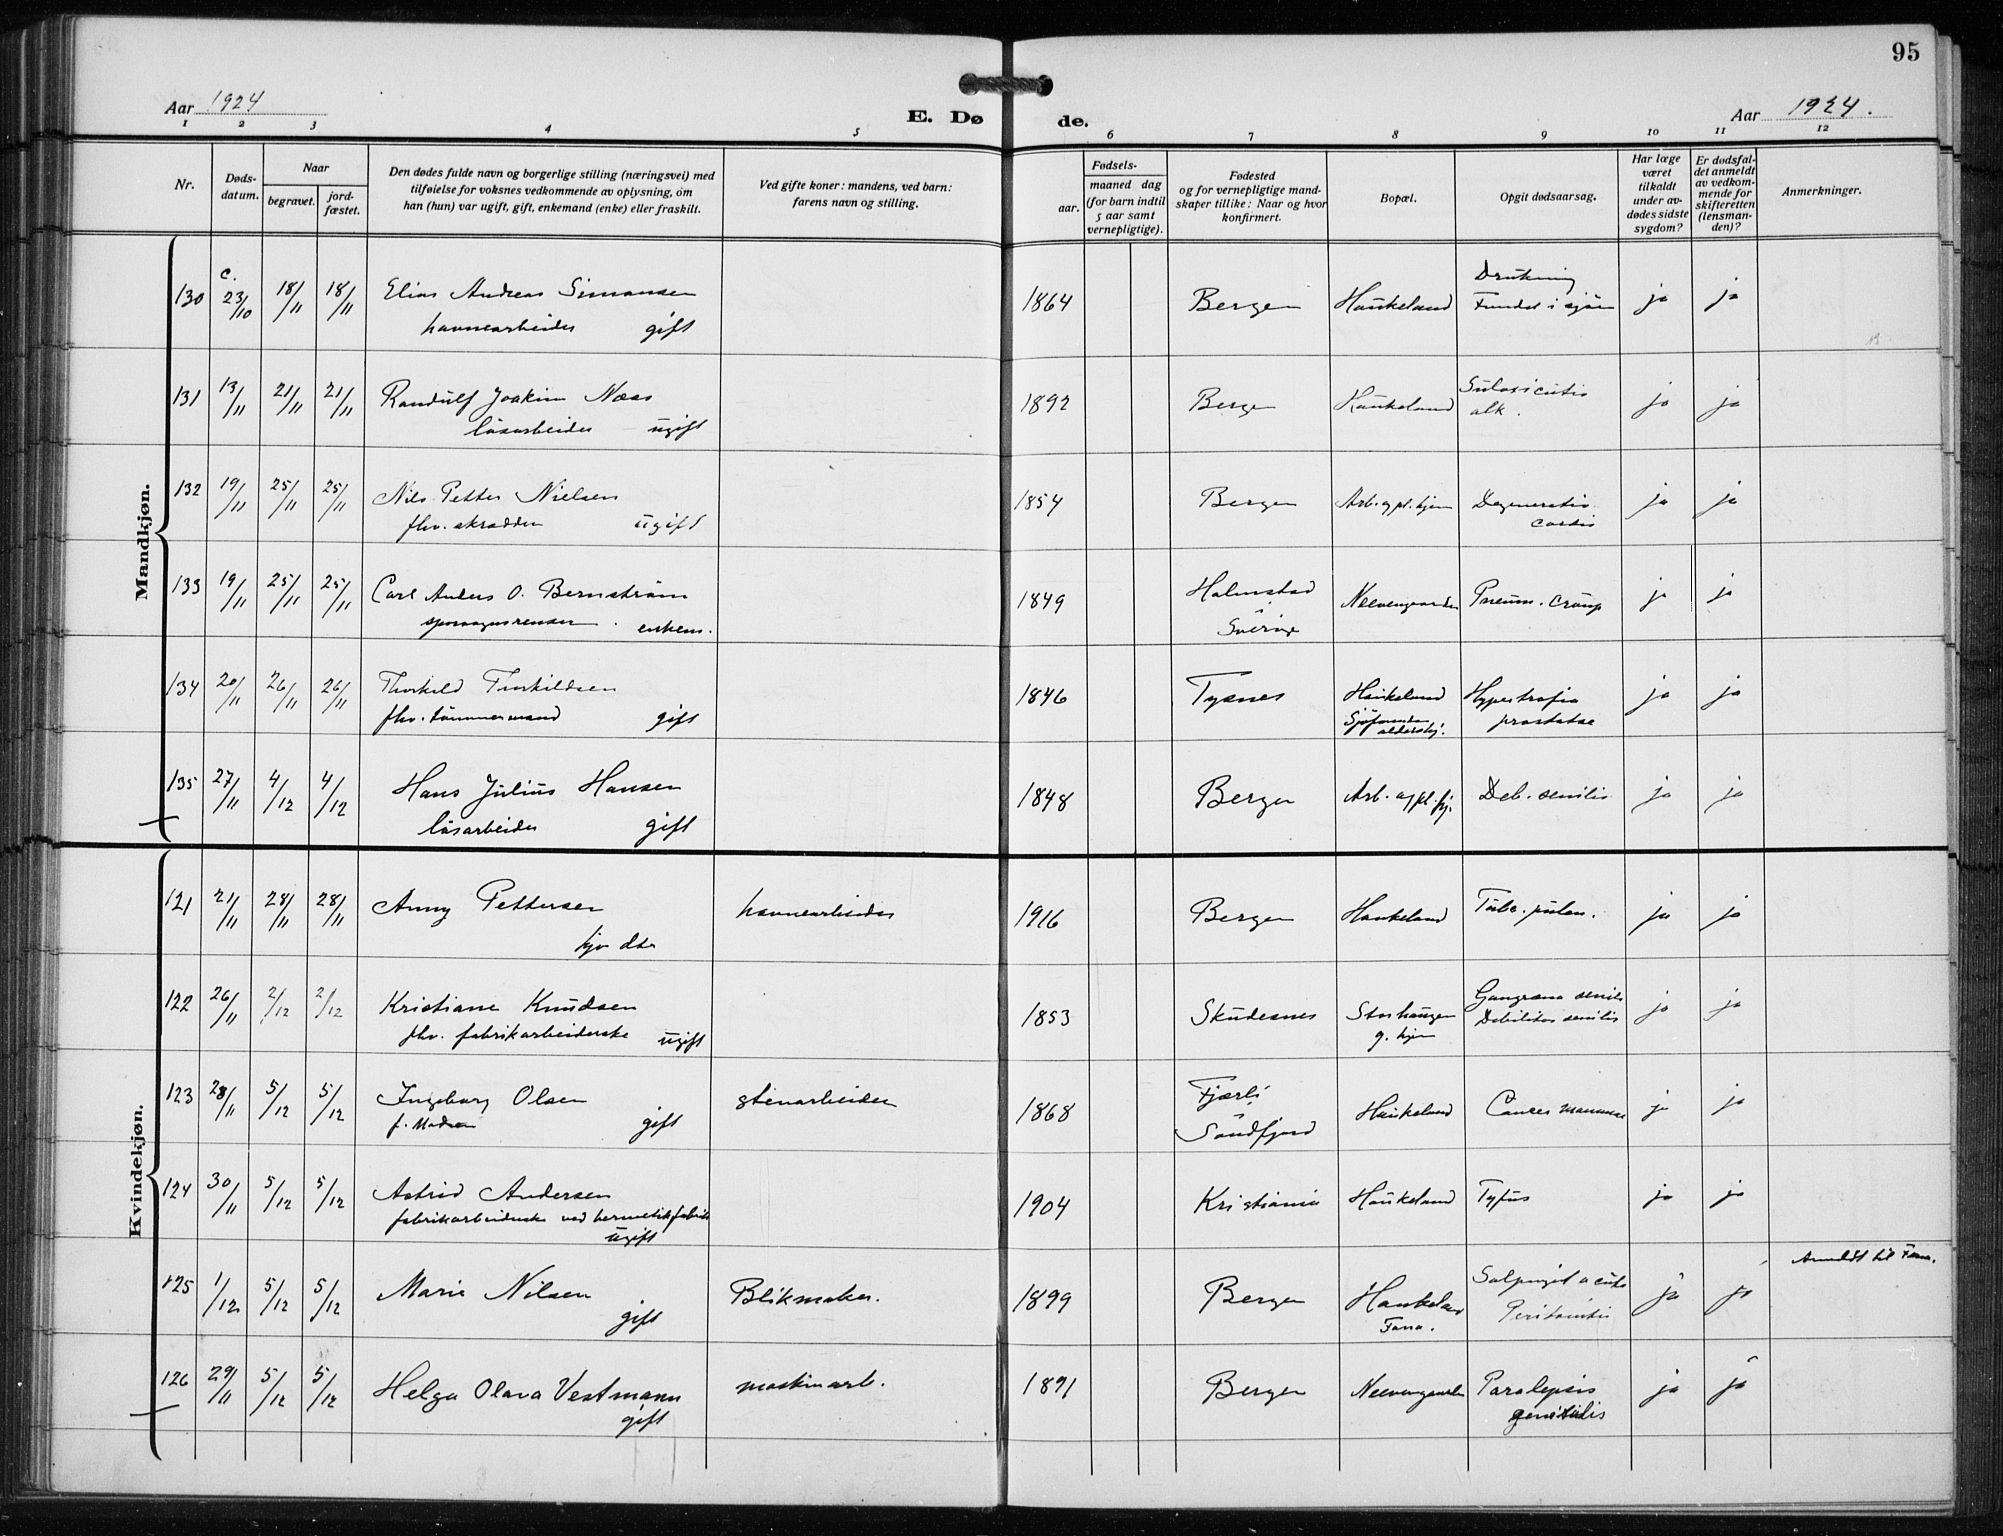 95
Aar 1924
E. Dø de.
Aar 1924.
1 2 3 4 5 6 7 8 9 10 11 12
Nr.
Døds-
datum.
Naar
begravet.
jord-
fæstet.
Den dødes fulde navn og borgerlige stilling (næringsvei) med
tilføielse for voksnes vedkommende av oplysning, om
han (hun) var ugift, gift, enkemand (enke) eller fraskilt.
Ved gifte koner: mandens, ved barn:
farens navn og stilling.
Fødsels-
aar.
maaned dag
(for barn indtil
5 aar samt
vernepligtige).
Fødested
og for vernepligtige mand-
skaper tillike: Naar og hvor
konfirmert.
Bopæl.
Opgit dødsaarsag.
Har læge
været
tilkaldt
under av-
dødes sidste
sygdom?
Er dødsfal-
det anmeldt
av vedkom-
mende for
skifteretten
(lensman-
den)?
Anmerkninger.
Mandkjøn.
130 c. 23/10 18/11 18/11 Elias Andreas Simonsen 1864 Bergen Haukeland Drukning ja ja
havnearbeider gift Fundet i sjøen
131 13/11 21/11 21/11 Randulf Joakim Næss 1892 Bergen Haukeland ja ja
løsarbeider ugift alk.
132 19/11 25/11 25/11 Nils Petter Nielsen 1854 Bergen Arb. og pl. hjem Degeneratio ja ja
fhv. skrædder ugift cordis
133 19/11 25/11 25/11 Carl Anders O. Bernstrøm 1849 Halmstad Neevengaarden Pneum. croup ja ja
sporvognsrenser enkem. i
Sverige
134 20/11 26/11 26/11 Thorkild Thorkildsen 1846 Tysnes Haukeland Hypertrofia ja ja
fhv. tømmermand gift aldershj. prostatae
135 27/11 4/12 4/12 Hans Julius Hansen 1848 Bergen Arb. og pl. hj. Deb. senilis ja ja
løsarbeider gift
Kvindekjøn.
121 21/11 28/11 28/11 Anny Pettersen havnearbeider 1916 Bergen Haukeland Tube. pulm. ja ja
dtr
122 26/11 2/12 2/12 Kristiane Knudsen 1853 Skudesnes Storhaugen Gangræna senilis ja ja
fhv. fabrikarbeiderske ugift g. hjem Debilitas senilis
123 28/11 5/12 5/12 Ingeborg Olsen stenarbeider 1868 Fjærli Haukeland Cancer mammae ja ja
f. Madsen gift i
Søndfjord
124 30/11 5/12 5/12 Astrid Andersen 1904 Kristiania Haukeland Tyfus ja ja
fabrikarbeiderske ved hermetikfabrik
ugift
125 1/12 5/12 5/12 Marie Nilsen Blikmaker. 1899 Bergen Haukeland Salpingit acuta ja ja Anmeldt til Fana.
gift Fana. Peritonitis
126 29/11 5/12 5/12 Helga Olava Vestmann maskinarb. 1891 Bergen Neevengaarden Paralysis ja ja
gift